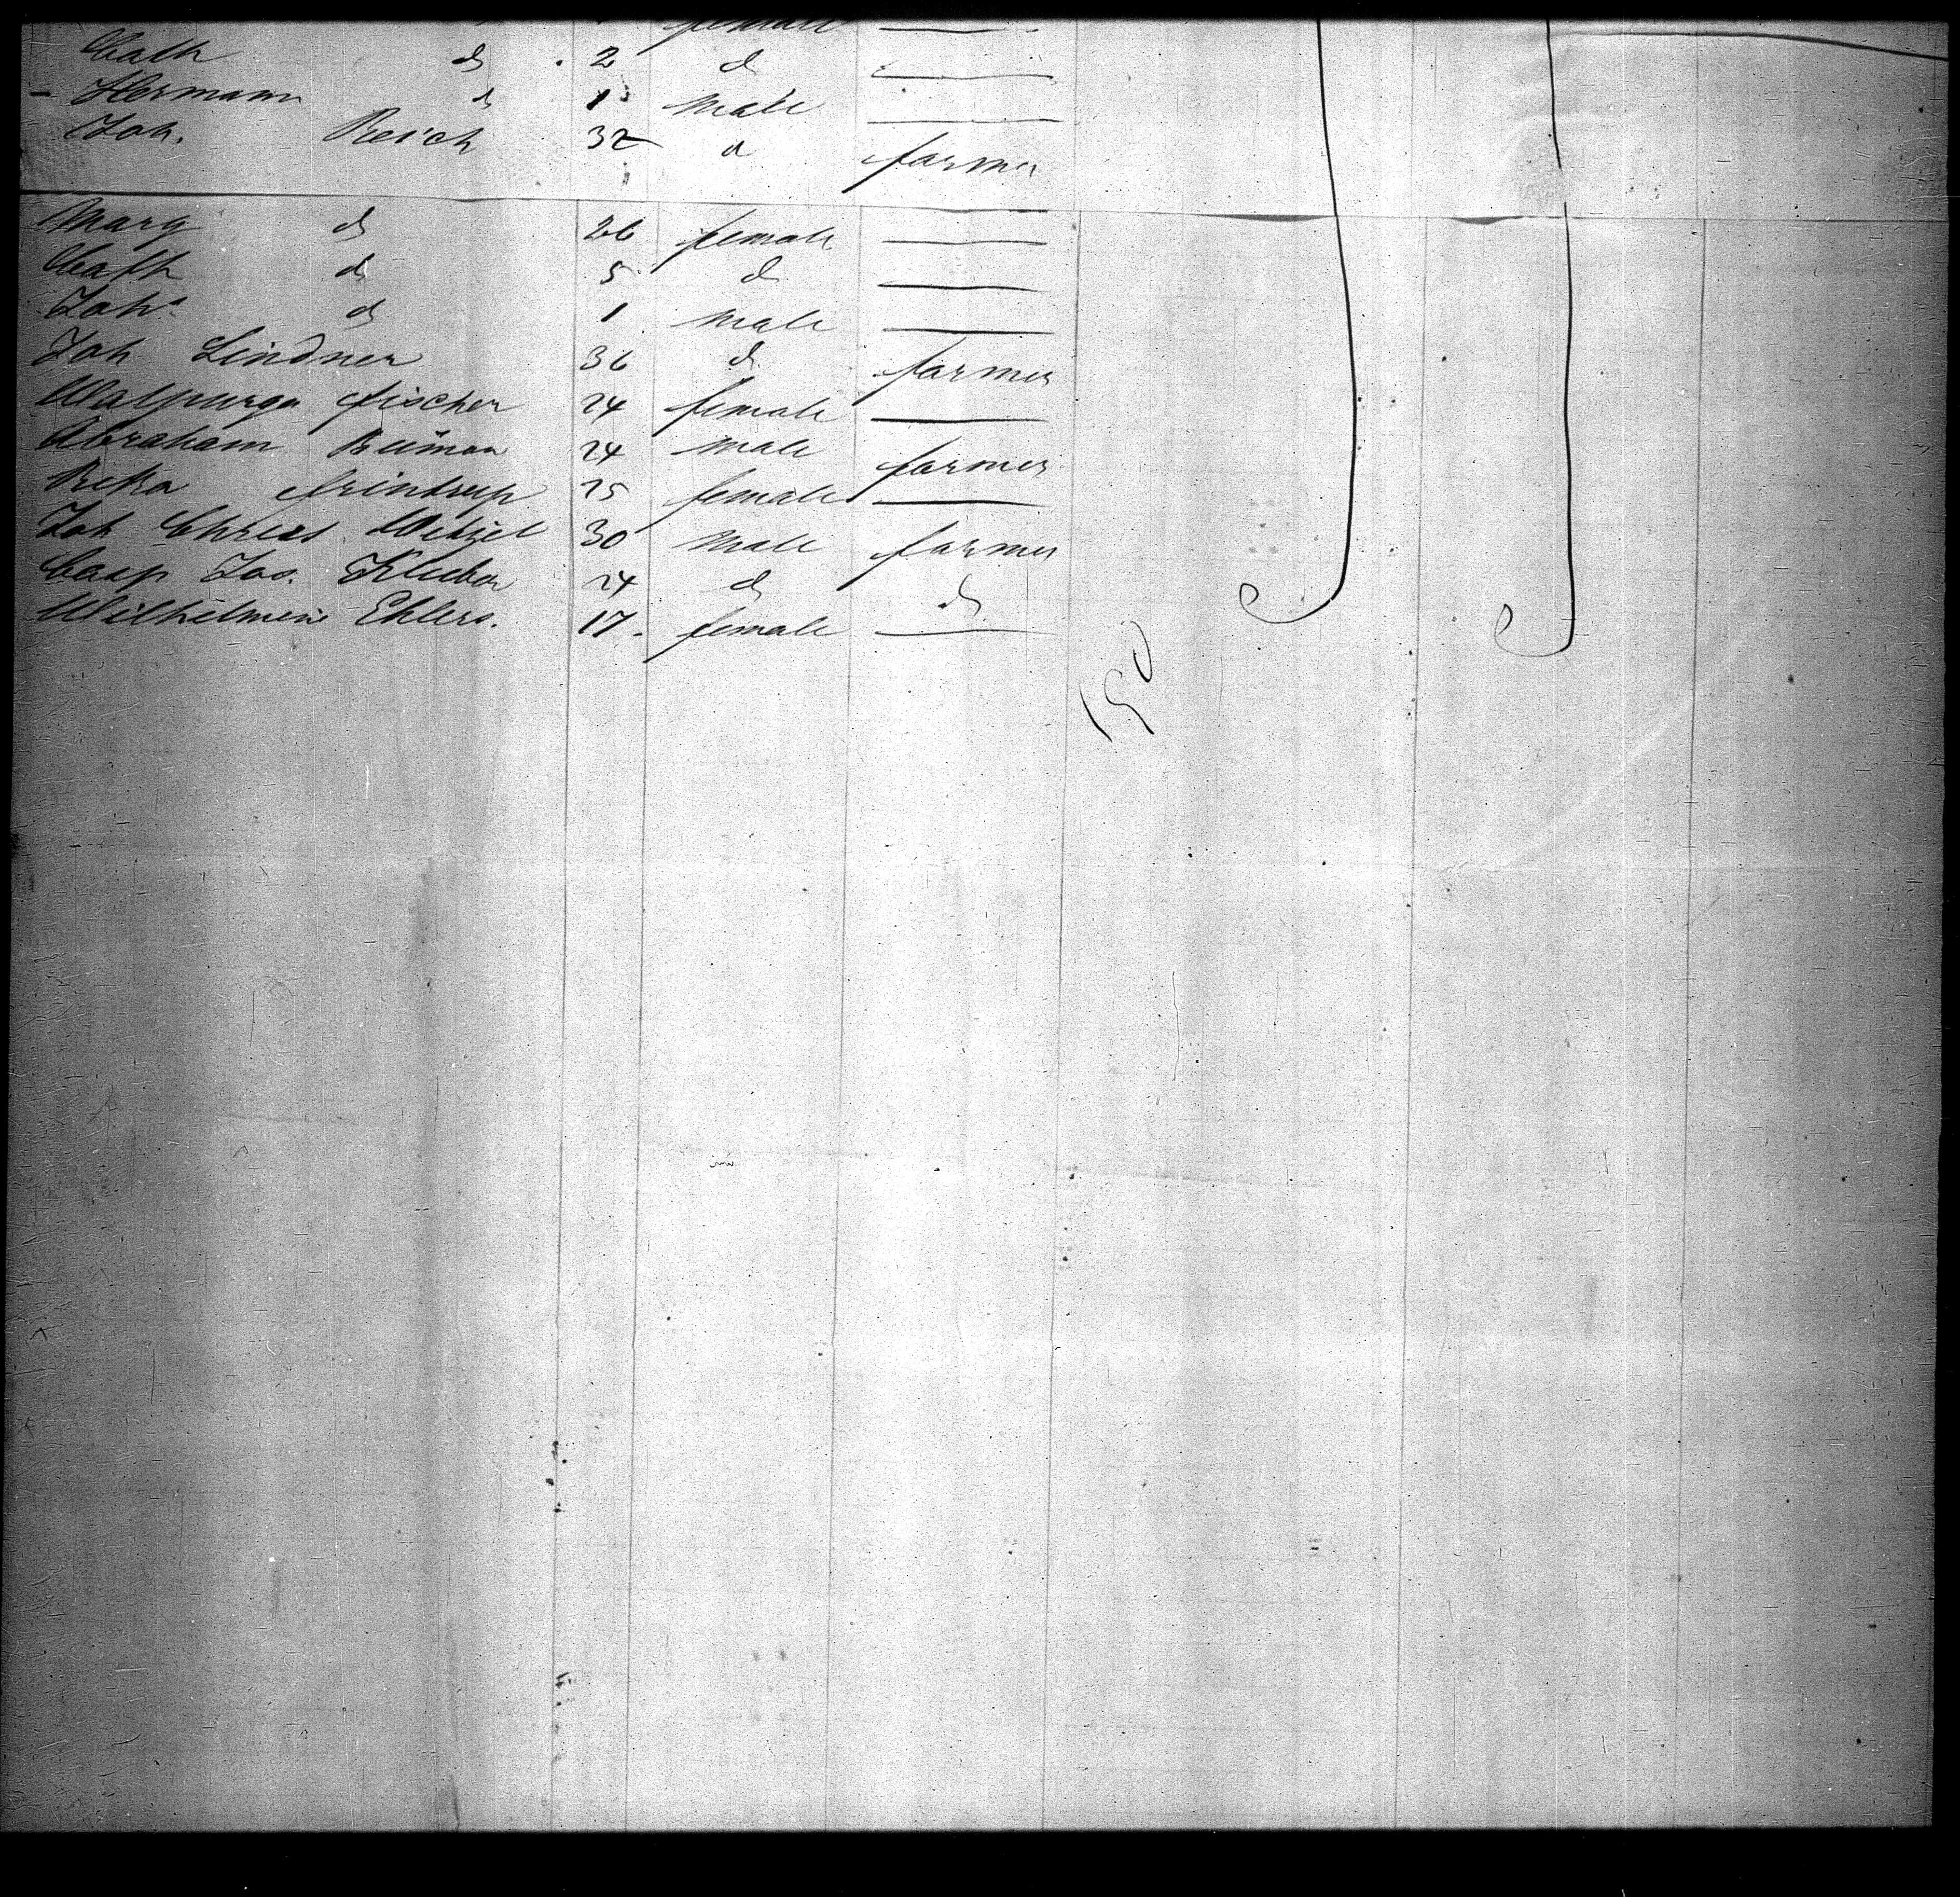 female —
Cath do 2 d —
- Hermann do 1 male —
Joh. Reich 32 d farmer
Marg do 26 female —
Cath do 5 d —
Joh. do 1 male —
Joh Lindner 36 d farmer
Walpurga Fischer 24 female —
Abraham 24 male farmer
25 female —
Joh Christ. Wetzel 30 male farmer
Casp Jos. 24 d do
Wilhelmine Ehlers. 17. female —
190